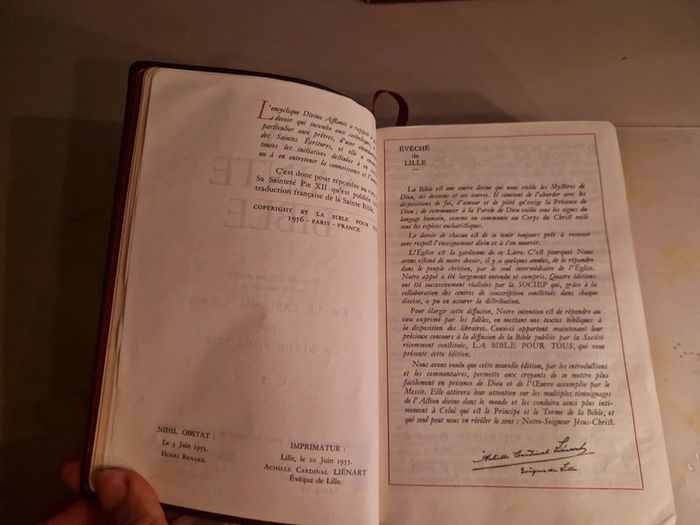 L'encyclique Divino Afflante a rappelé
devoir qui incombe aux catholiques
particulier aux prêtres, d'user
des Saintes Écritures, et elle a
toutes les initiatives destinées à
ou à en entretenir la connaissance et l'
C'est donc pour répondre au
Sa Sainteté Pie XII qu'est
traduction française de la Sainte Bible.
COPYRIGHT BY LA BIBLE POUR
1956 - PARIS - FRANCE
NIHIL OBSTAT :
Le 3 Juin 1955.
HENRI RENARD.
IMPRIMATUR :
Lille, le 10 Juin 1955.
ACHILLE CARDINAL LIÉNART
Évêque de Lille.
ÉVÊCHÉ
de
LILLE
La Bible est une œuvre divine qui nous révèle les Mystères de
Dieu, ses desseins et ses œuvres. Il convient de l'aborder avec les
dispositions de foi, d'amour et de piété qu'exige la Présence de
Dieu ; de communier à la Parole de Dieu voilée sous les signes du
langage humain, comme on communie au Corps du Christ voilé
sous les espèces eucharistiques.
Le devoir de chacun est de se tenir toujours prêt à recevoir
avec respect l'enseignement divin et à s'en nourrir.
L'Église est la gardienne de ce Livre. C'est pourquoi Nous
avons estimé de notre devoir, il y a quelques années, de le répandre
dans le peuple chrétien, par le seul intermédiaire de l'Église.
Notre appel a été largement entendu et compris. Quatre éditions
ont été successivement réalisées par la SOCIEP qui, grâce à la
collaboration des centres de souscription constitués dans chaque
diocèse, a pu en assurer la distribution.
Pour élargir cette diffusion, Notre intention est de répondre au
vœu exprimé par les fidèles, en mettant nos textes bibliques à
la disposition des libraires. Ceux-ci apportent maintenant leur
précieux concours à la diffusion de la Bible publiée par la Société
récemment constituée, LA BIBLE POUR TOUS, qui vous
présente cette édition.
Nous avons voulu que cette nouvelle édition, par les introductions
et les commentaires, permette aux croyants de se mettre plus
facilement en présence de Dieu et de l'Œuvre accomplie par le
Messie. Elle attirera leur attention sur les multiples témoignages
de l'Action divine dans le monde et les conduira ainsi plus inti-
mement à Celui qui est le Principe et le Terme de la Bible, et
qui seul peut nous en révéler le sens : Notre-Seigneur Jésus-Christ.
Achille Cardinal Liénart
Évêque de Lille